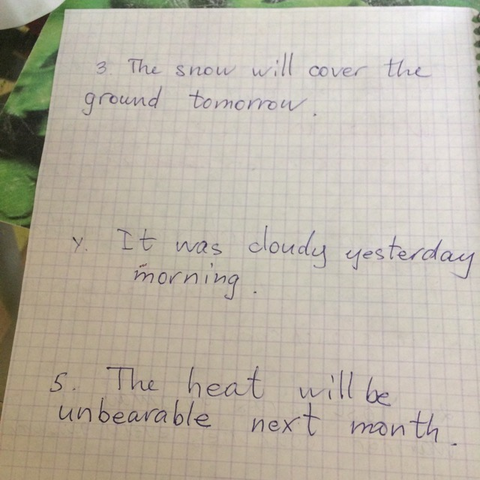 3. The snow will cover the
ground tomorrow.
4. It was cloudy yesterday
morning.
5. The heat will be
unbearable next month.